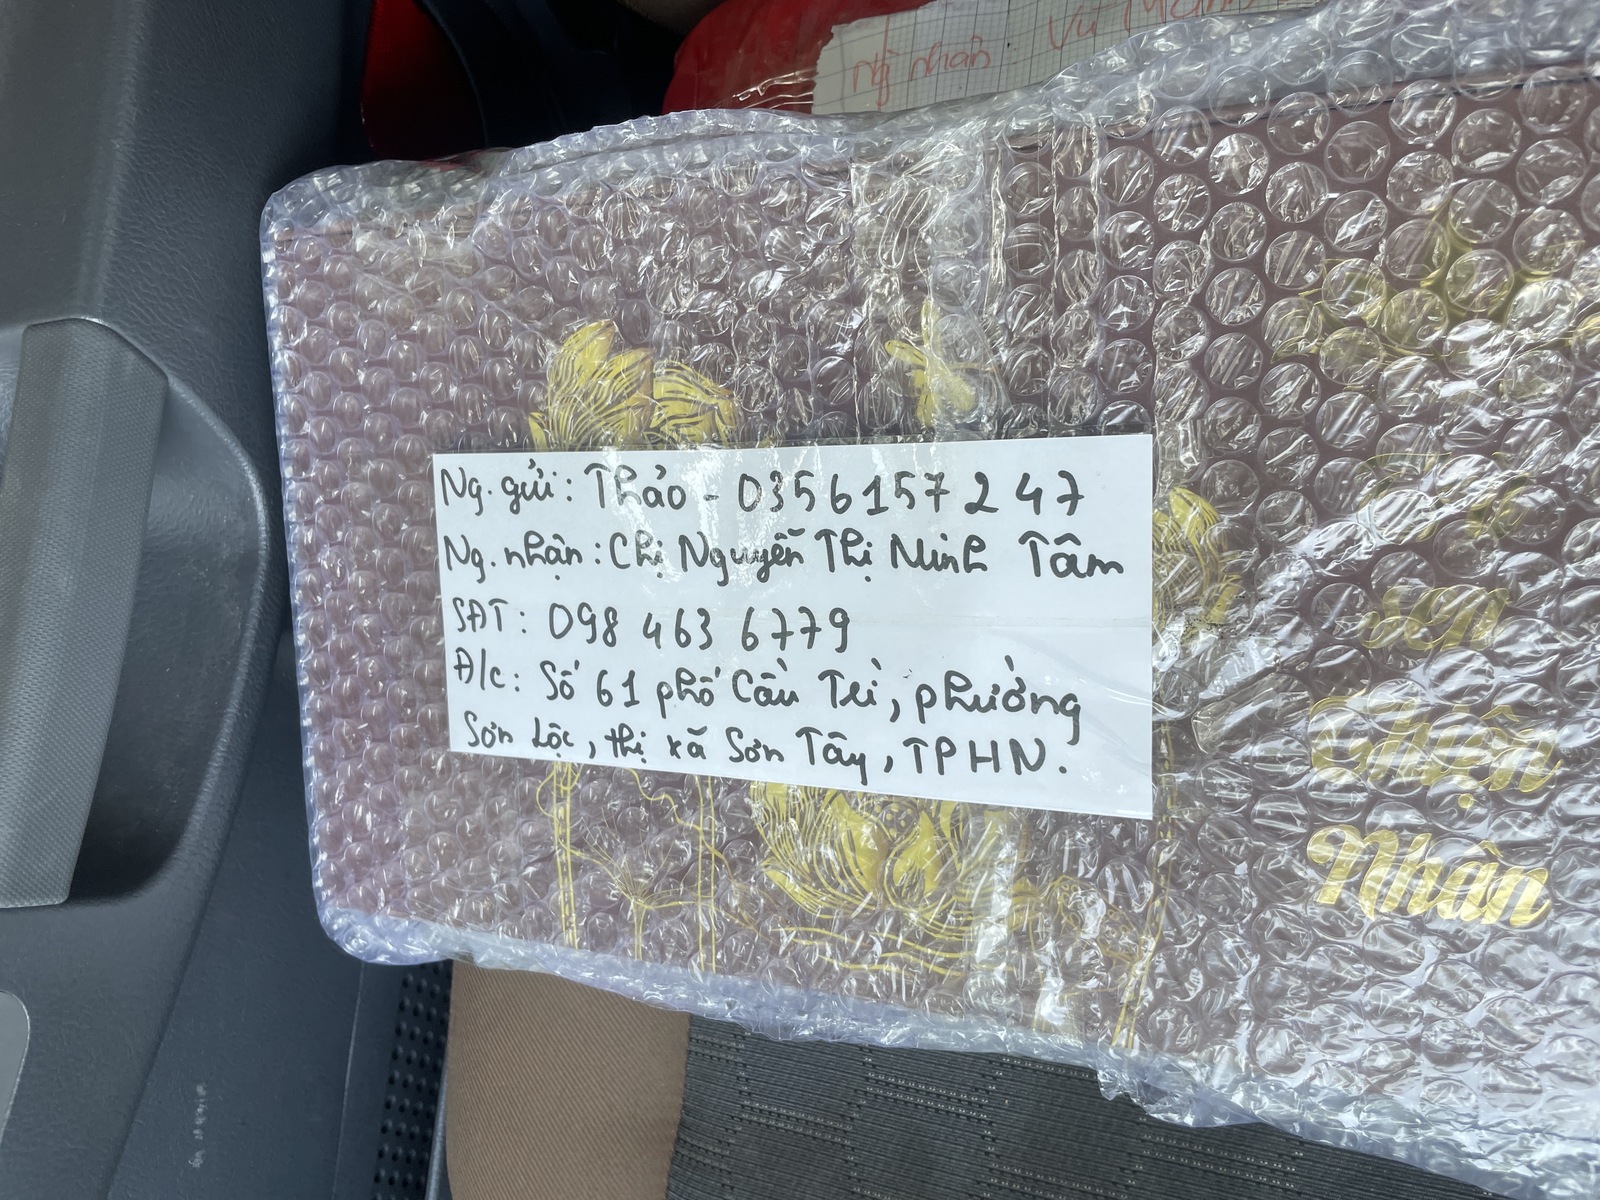 Ng nhận Vũ
Ng. gửi: Thảo - 0356157247
Ng. nhận: Chị Nguyễn Thị Minh Tâm
SĐT: 098 463 6779
Đ/c: Số 61 phố Cầu Trì, phường
Sơn Lộc, thị xã Sơn Tây, TPHN.
Thiện
Nhân